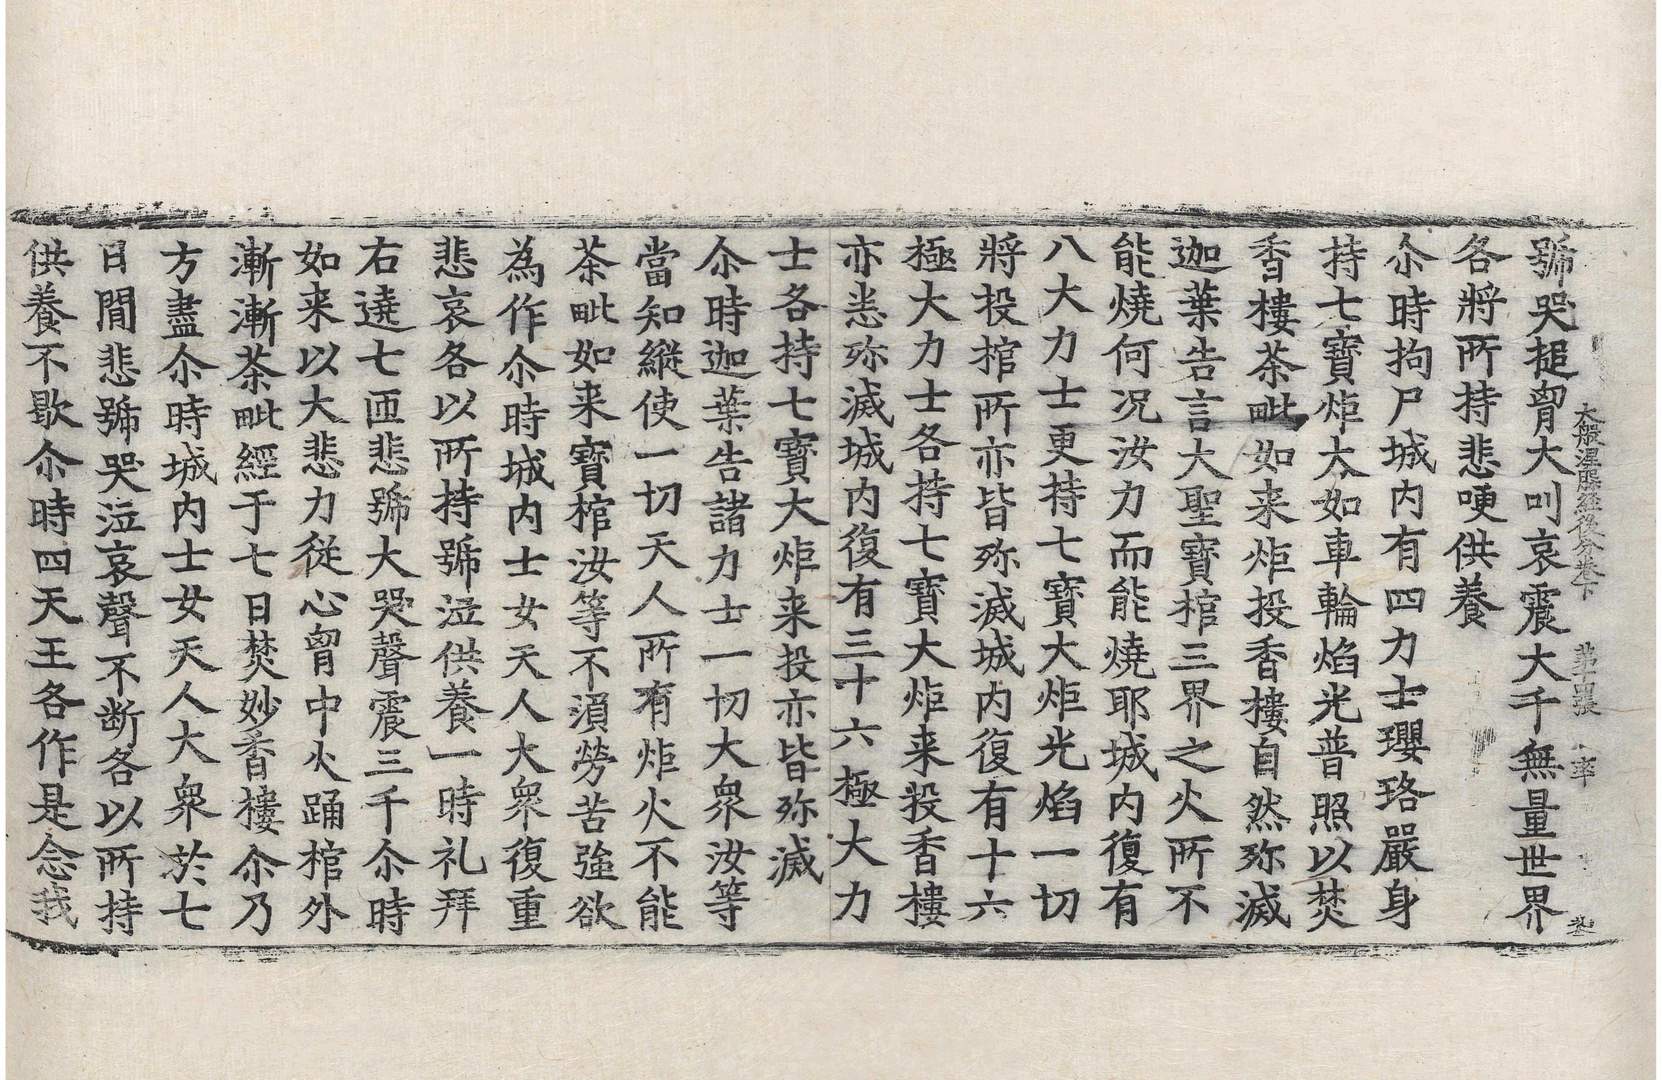 大般涅槃経後分巻下 第十張 率
號哭搥胷大叫哀震大千無量世界
各將所持悲哽供養
尒時拘尸城内有四力士瓔珞嚴身
持七寶炬大如車輪焰光普照以焚
香樓茶毗如来炬投香樓自然弥滅
迦葉告言大聖寶棺三界之火所不
能燒何况汝力而能燒耶城内復有
八大力士更持七寶大炬光焰一切
將投棺所亦皆弥滅城内復有十六
極大力士各持七寶大炬来投香樓
亦悉弥滅城内復有三十六極大力
士各持七寶大炬来投亦皆弥滅
尒時迦葉告諸力士一切大衆汝等
當知縱使一切天人所有炬火不能
茶毗如来寶棺汝等不湏勞苦強欲
為作尒時城内士女天人大衆復重
悲哀各以所持號泣供養一時礼拜
右遶七匝悲號大哭聲震三千尒時
如来以大悲力従心胷中火踊棺外
漸漸茶毗經于七日焚妙香樓尒乃
方盡尒時城内士女天人大衆於七
日間悲號哭泣哀聲不断各以所持
供養不歇尒時四天王各作是念我